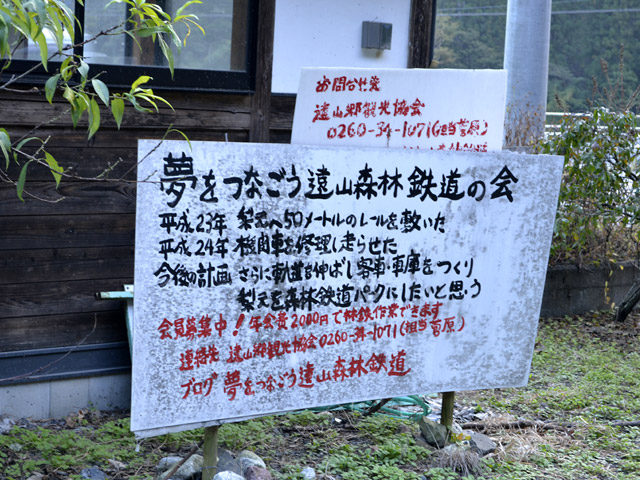 お問い合わせ先
遠山郷観光協会
0260-34-1071(担当菅原)
夢をつなごう遠山森林鉄道の会
平成23年 梨元へ50メートルのレールを敷いた
平成24年 機関車を修理し走らせた
今後の計画 さらに軌道を伸ばし客車・車庫をつくり
梨元を森林鉄道パークにしたいと思う
会員募集中!年会費2000円で林鉄作業できます
連絡先 遠山郷観光協会0260-34-1071(担当菅原)
ブログ 夢をつなごう遠山森林鉄道